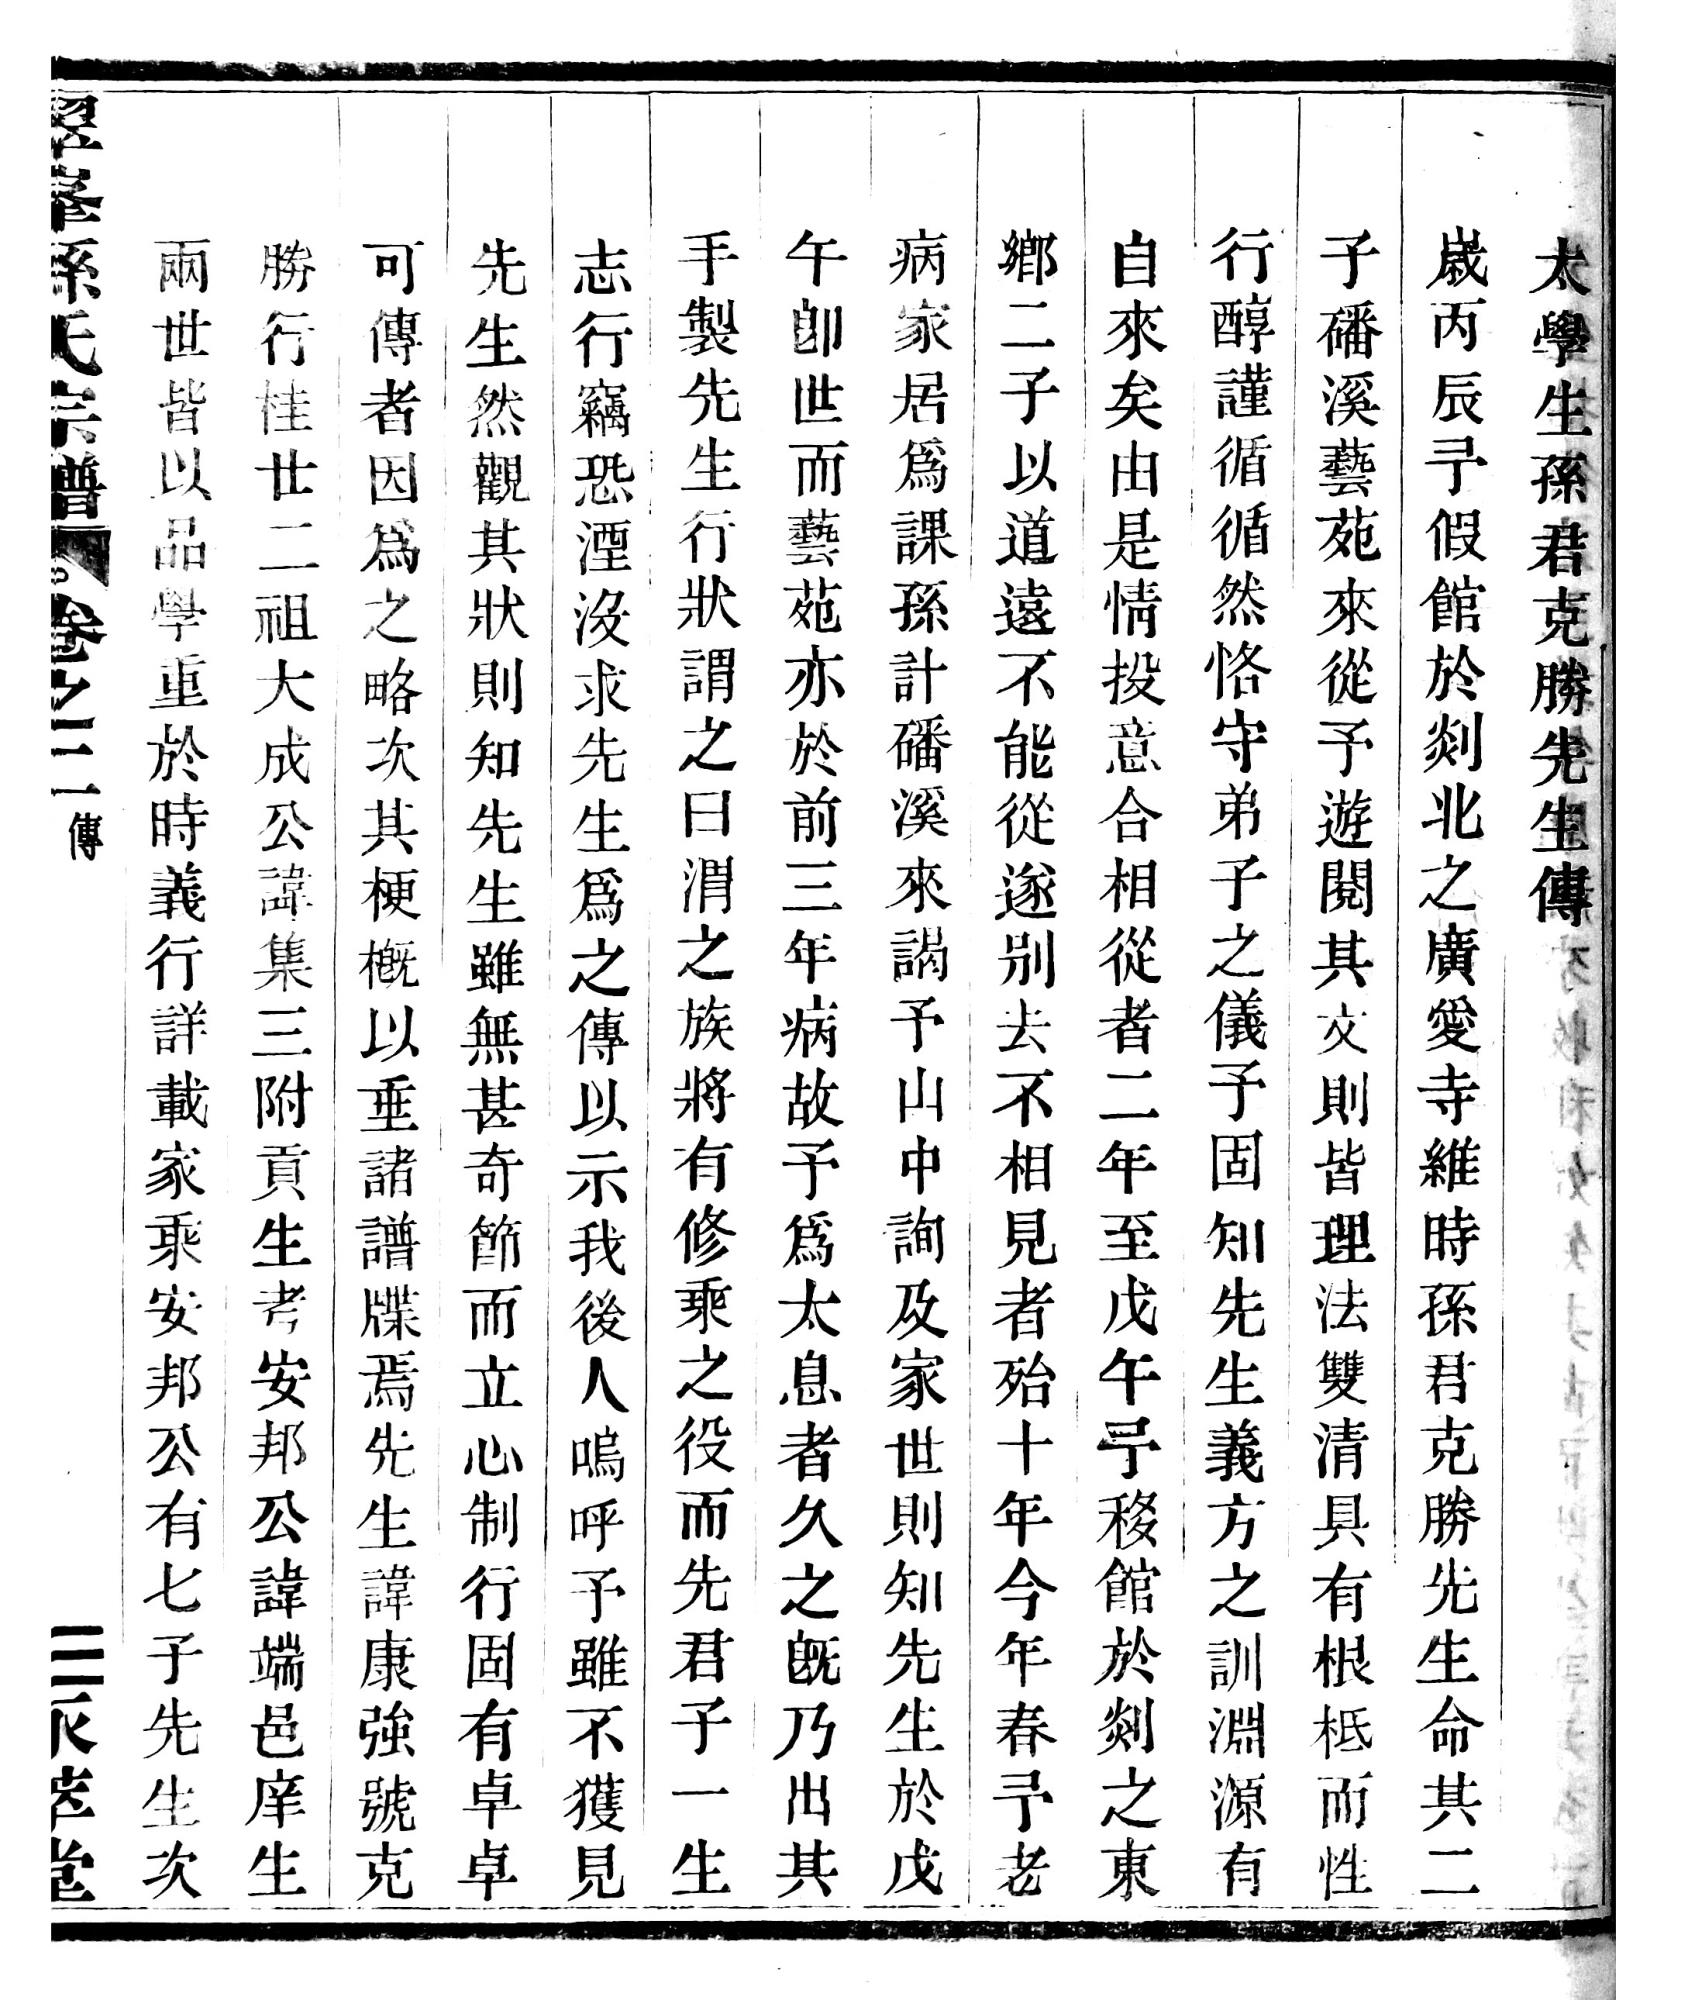 太學生孫君克勝先生傳
歲丙辰予假館於剡北之廣愛寺維時孫君克勝先生命其二
子磻溪藝苑來從予遊閱其文則皆理法雙清具有根柢而性
行醇謹循循然恪守弟子之儀予固知先生義方之訓淵源有
自來矣由是情投意合相從者二年至戊午予移館於剡之東
鄉二子以道遠不能從遂別去不相見者殆十年今年春予老
病家居爲課孫計磻溪來謁予山中詢及家世則知先生於戊
午卽世而藝苑亦於前三年病故予爲太息者久之旣乃出其
手製先生行狀謂之曰渭之族將有修乘之役而先君子一生
志行竊恐湮沒求先生爲之傳以示我後人嗚呼予雖不獲見
先生然觀其狀則知先生雖無甚奇節而立心制行固有卓卓
可傳者因爲之略次其梗概以垂諸譜牒焉先生諱康強號克
勝行桂廿二祖大成公諱集三附貢生考安邦公諱端邑庠生
兩世皆以品學重於時義行詳載家乘安邦公有七子先生次
翠峯孫氏宗譜 卷之二 傳 三 永萃堂